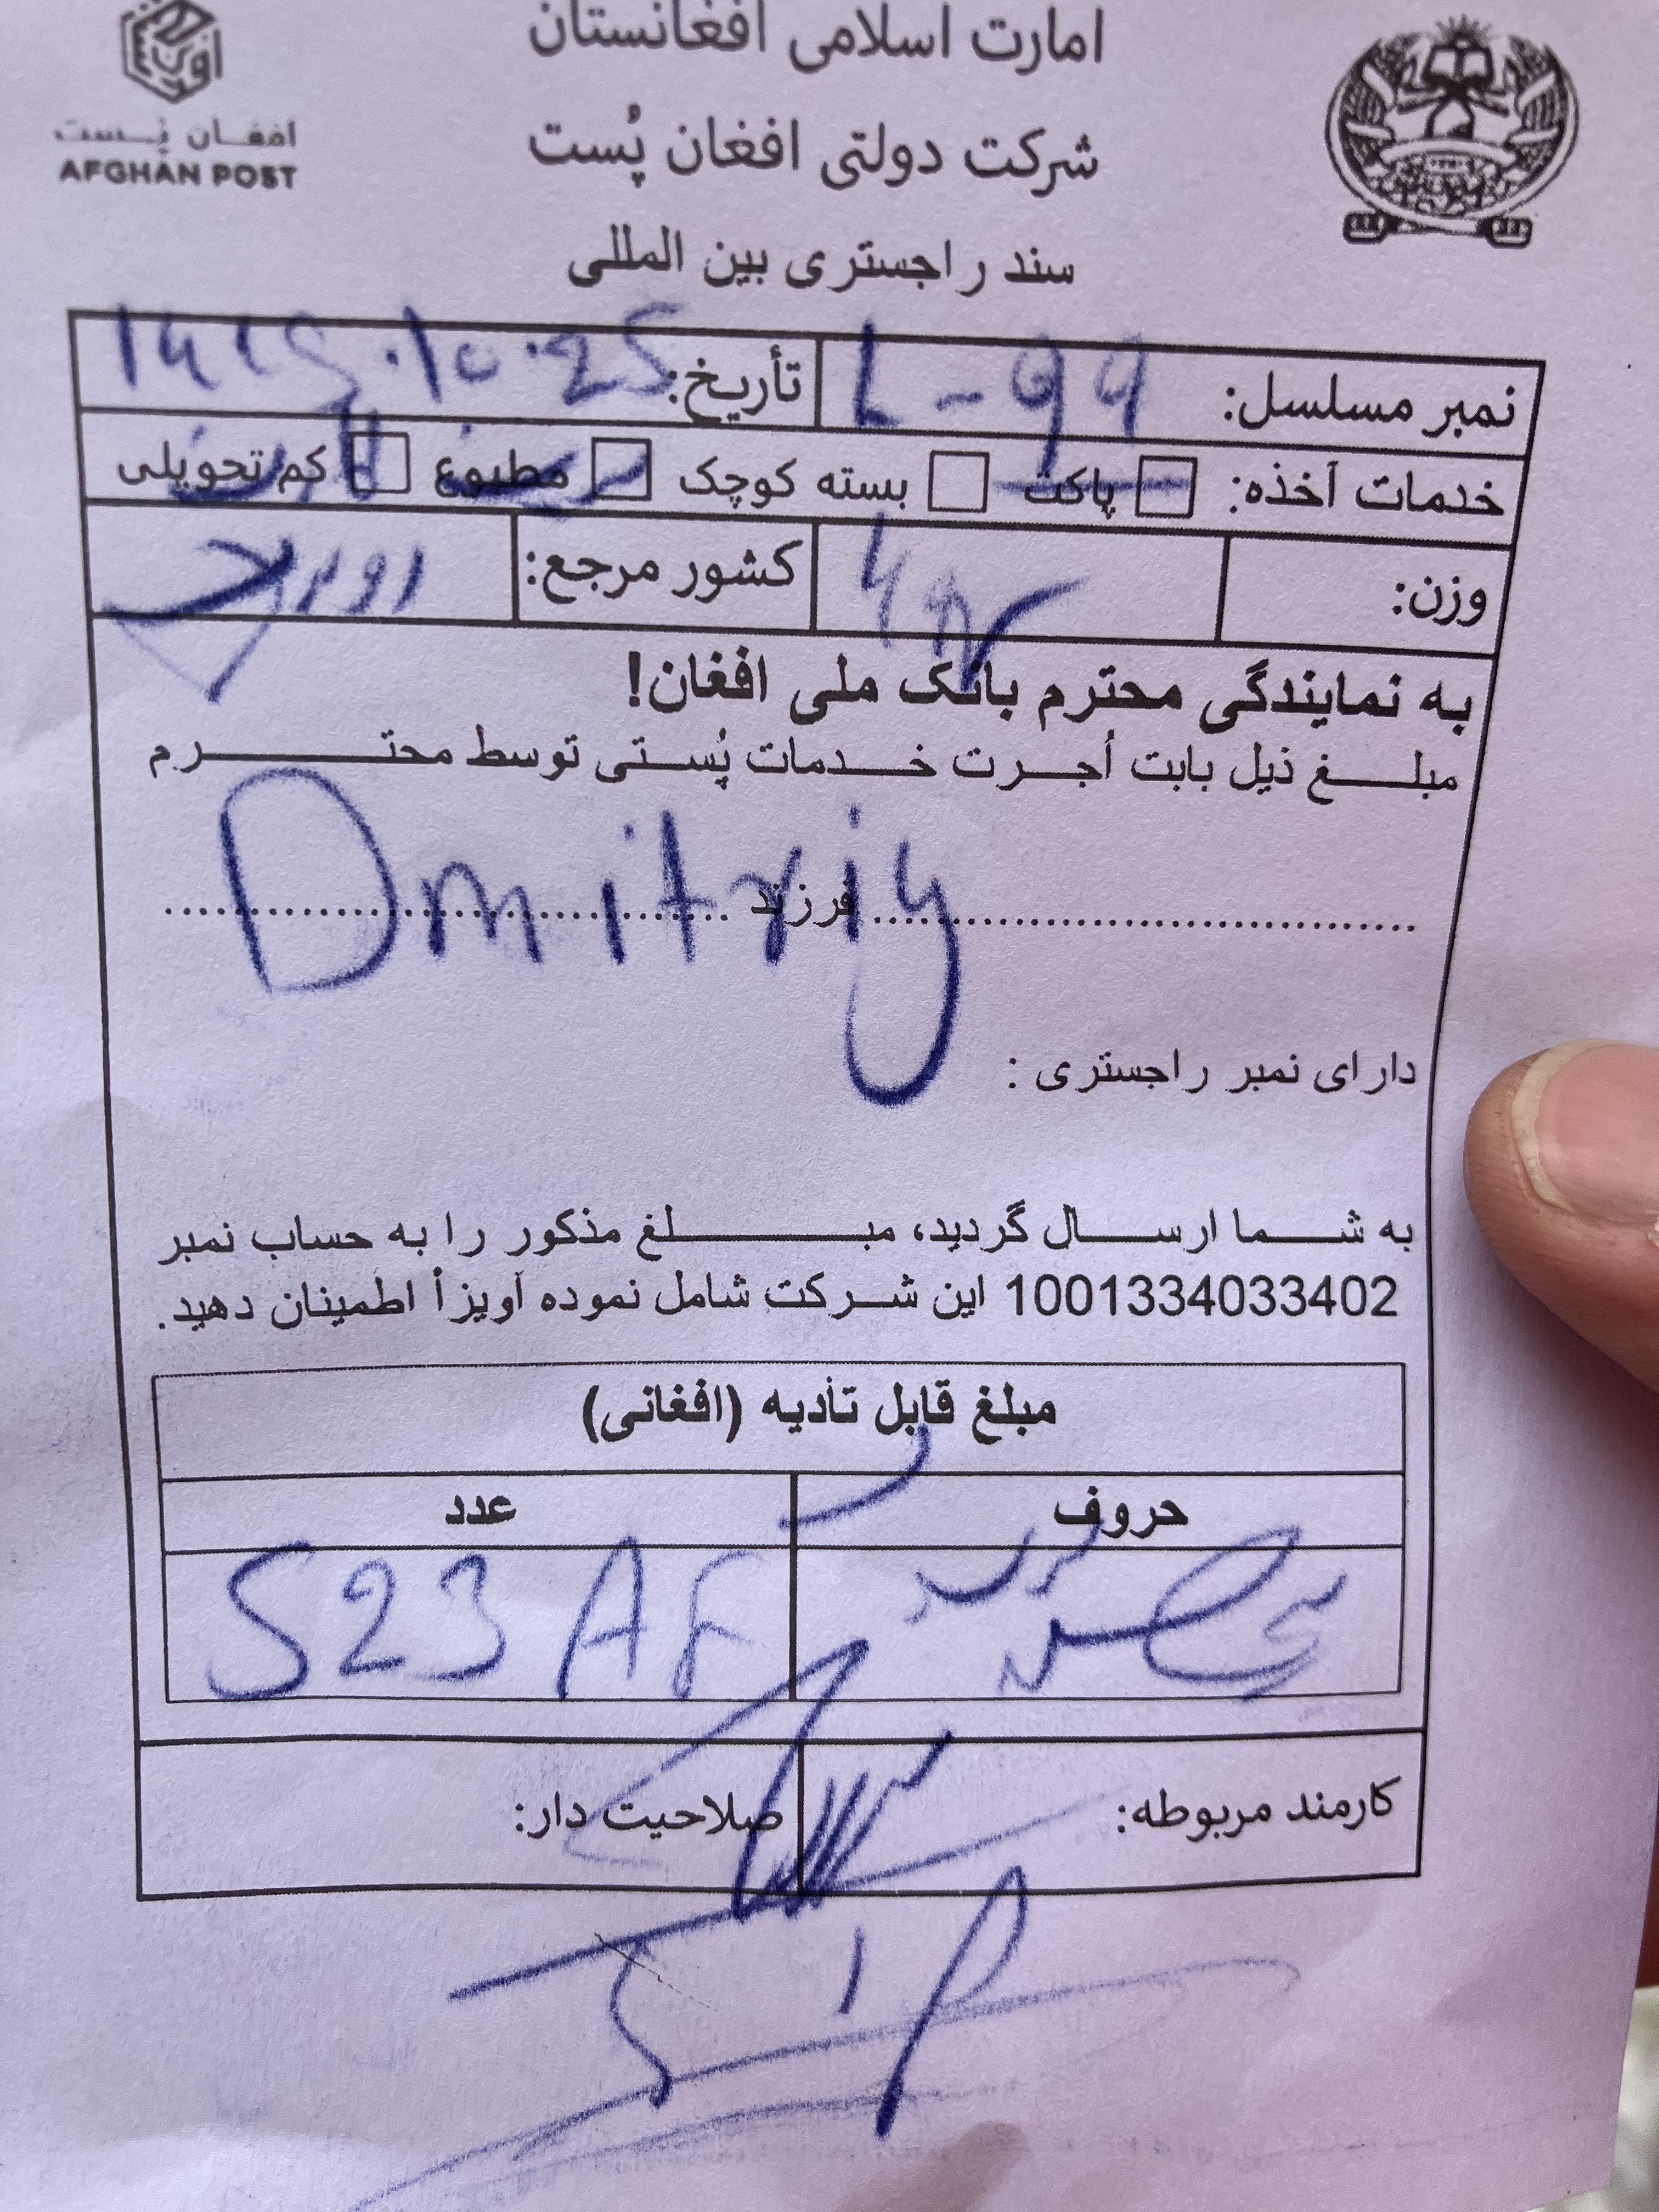 امارت اسلامی افغانستان
افغان پُست
AFGHAN POST
شرکت دولتی افغان پُست
سند راجستری بین المللی
نمبر مسلسل: L-99 تأریخ:
خدمات آخذه: پاکت بسته کوچک مطبوع کم تحویلی
وزن: کشور مرجع:
به نمایندگی محترم بانک ملی افغان!
مبلغ ذیل بابت اُجرت خدمات پُستی توسط محترم
Dmitriy
فرزند
دارای نمبر راجستری :
به شما ارسال گردید، مبلغ مذکور را به حساب نمبر
1001334033402 این شرکت شامل نموده آویزأ اطمینان دهید.
مبلغ قابل تأدیه (افغانی)
حروف عدد
523 AF
کارمند مربوطه: صلاحیت دار: